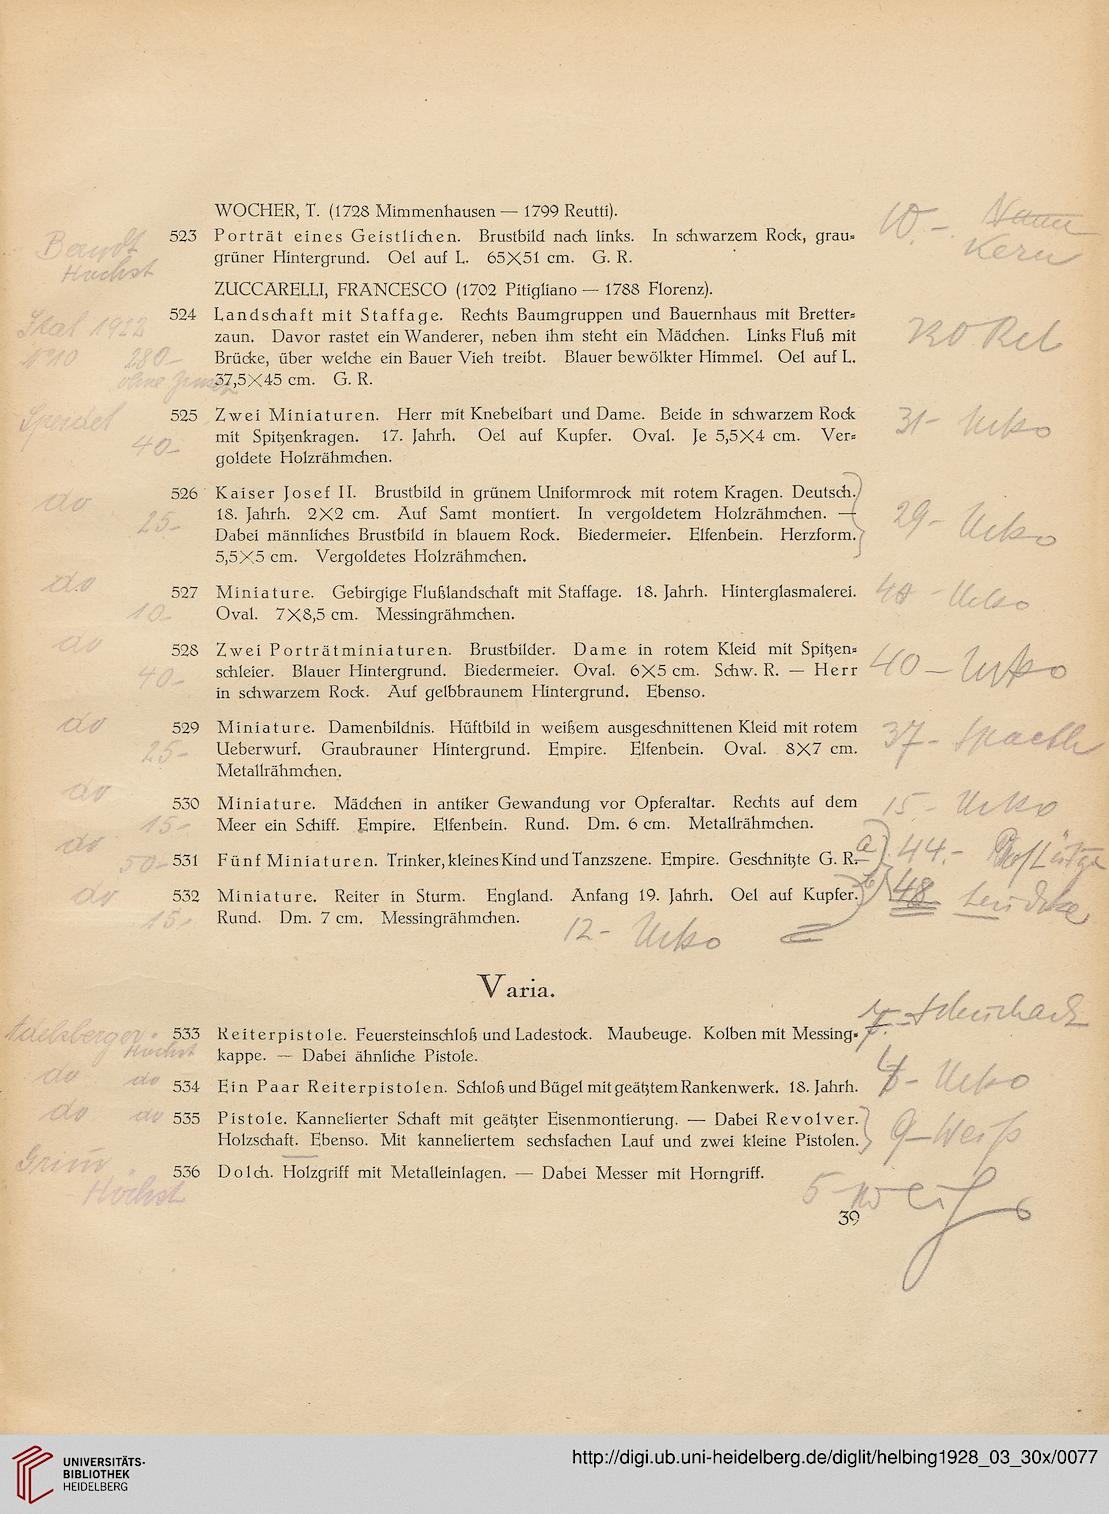 WOCHER, T. (1728 Mimmenhausen — 1799 Reutti).
10.-
Kern
Berndt
Höchst
523 Porträt eines Geistlichen. Brustbild nach links. In schwarzem Rock, grau-
grüner Hintergrund. Oel auf L. 65×51 cm. G. R.
ZUCCARELLI, FRANCESCO (1702 Pitigliano — 1788 Florenz).
524 Landschaft mit Staffage. Rechts Baumgruppen und Bauernhaus mit Bretter-
zaun. Davor rastet ein Wanderer, neben ihm steht ein Mädchen. Links Fluß mit
Brücke, über welche ein Bauer Vieh treibt. Blauer bewölkter Himmel. Oel auf L.
37,5×45 cm. G. R.
280-
Speidel
40-
525 Zwei Miniaturen. Herr mit Knebelbart und Dame. Beide in schwarzem Rock
mit Spitzenkragen. 17. Jahrh. Oel auf Kupfer. Oval. Je 5,5×4 cm. Ver-
goldete Holzrähmchen.
31-
do
25-
526 Kaiser Josef II. Brustbild in grünem Uniformrock mit rotem Kragen. Deutsch.
18. Jahrh. 2×2 cm. Auf Samt montiert. In vergoldetem Holzrähmchen. —
Dabei männliches Brustbild in blauem Rock. Biedermeier. Elfenbein. Herzform.
5,5×5 cm. Vergoldetes Holzrähmchen.
29-
do
10-
527 Miniature. Gebirgige Flußlandschaft mit Staffage. 18. Jahrh. Hinterglasmalerei.
Oval. 7×8,5 cm. Messingrähmchen.
do
40-
528 Zwei Porträtminiaturen. Brustbilder. Dame in rotem Kleid mit Spitzen-
schleier. Blauer Hintergrund. Biedermeier. Oval. 6×5 cm. Schw. R. — Herr
in schwarzem Rock. Auf gelbbraunem Hintergrund. Ebenso.
40 -
do
25-
529 Miniature. Damenbildnis. Hüftbild in weißem ausgeschnittenen Kleid mit rotem
Ueberwurf. Graubrauner Hintergrund. Empire. Elfenbein. Oval. 8×7 cm.
Metallrähmchen.
37- Spaeth
do
15-
530 Miniature. Mädchen in antiker Gewandung vor Opferaltar. Rechts auf dem
Meer ein Schiff. Empire. Elfenbein. Rund. Dm. 6 cm. Metallrähmchen.
15.-
do
50-
531 Fünf Miniaturen. Trinker, kleines Kind und Tanzszene. Empire. Geschnitzte G. R.
a) 44.-
do
15.-
532 Miniature. Reiter in Sturm. England. Anfang 19. Jahrh. Oel auf Kupfer.
Rund. Dm. 7 cm. Messingrähmchen.
b) 48
12-
Varia.
Adelsberger
Höchst
533 Reiterpistole. Feuersteinschloß und Ladestock. Maubeuge. Kolben mit Messing-
kappe. — Dabei ähnliche Pistole.
do do
534 Ein Paar Reiterpistolen. Schloß und Bügel mit geätztem Rankenwerk. 18. Jahrh.
do do
535 Pistole. Kannelierter Schaft mit geätzter Eisenmontierung. — Dabei Revolver.
Holzschaft. Ebenso. Mit kanneliertem sechsfachen Lauf und zwei kleine Pistolen.
9- Weiß
Grim
Höchst
536 Dolch. Holzgriff mit Metalleinlagen. — Dabei Messer mit Horngriff.
5- Weiß
39
UNIVERSITÄTS-
BIBLIOTHEK
HEIDELBERG
http://digi.ub.uni-heidelberg.de/diglit/helbing1928_03_30x/0077